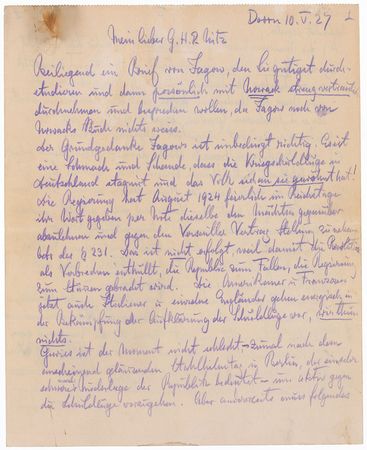 Doorn 10. V. 27
Mein lieber G. H. R. Nitz
Beiliegend ein Brief von Jagow, den Sie gütigst durch-
studieren und dann persönlich mit Nowack streng vertraulich
durchnehmen und besprechen wollen, da Jagow noch von
Nowacks Buch nichts weiss.
Der Grundgedanke Jagows ist unbedingt richtig. Es ist
eine Schmach und Schande, dass die Kriegsschuldlüge in
Deutschland stagniert und das Volk sich an sie gewöhnt hat!
Die Regierung hat August 1924 feierlich im Reichstage
ihr Wort gegeben per Not dieselbe den Mächten gegenüber
abzulehnen und gegen den Versailler Vertrag Stellung zu nehmen
betr. des § 231. Das ist nicht erfolgt, weil damit die Revolution
als Verbrechen enthüllt, die Republik zum Fallen, die Regierung
zum Stürzen gebracht wird. Die Amerikaner u Franzosen
jetzt auch Italiener u einzelne Engländer gehen energisch in
der Bekämpfung der Aufklärung der Schuldlüge vor, wir thun
nichts.
Gewiss ist der Moment nicht schlecht – zumal nach dem
anscheinend glänzenden Stahlhelmtag in Berlin, der eine sehr
schwere Niederlage der Republik bedeutet – um aktiv gegen
die Schuldlüge vorzugehen. Aber andererseits muss folgendes